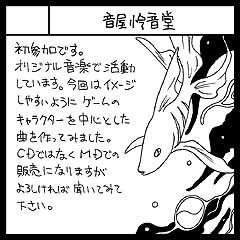 音屋怜音堂
初参加です。
オリジナル音楽で活動
しています。今回はイメージ
しやすいように ゲームの
キャラクターを中心とした
曲を作ってみました。
CDではなくMDでの
販売になりますが
よろしければ聞いてみて
下さい。